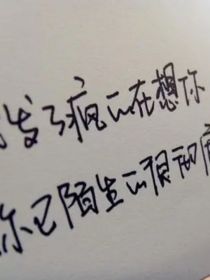 发了疯的在想你
你已陌生的很彻底